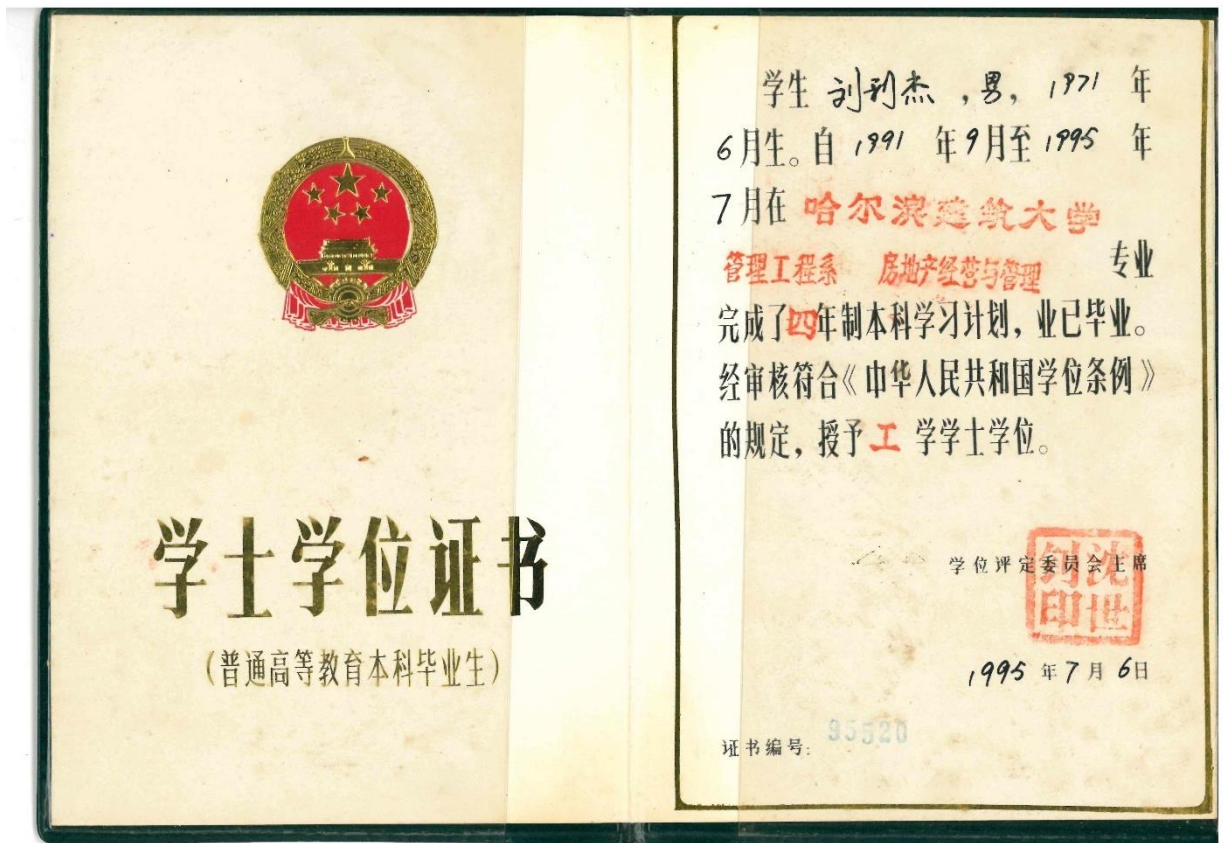 学士学位证书
(普通高等教育本科毕业生)
学生 刘利杰 ,男, 1971 年
6月生。自 1991 年9月至1995 年
7月在 哈尔滨建筑大学
管理工程系 房地产经营与管理 专业
完成了四年制本科学习计划, 业已毕业。
经审核符合《中华人民共和国学位条例》
的规定, 授予 工 学学士学位。
学位评定委员会主席
沈世钊印
1995 年7月6日
证书编号: 95520